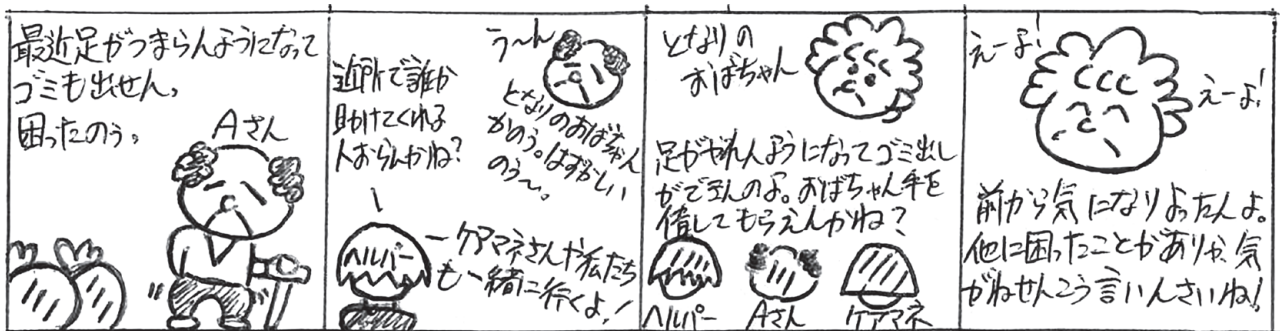 最近足がつまらんようになって
ゴミも出せん。
困ったのぅ。
Aさん
近所で誰か
助けてくれる
人おらんかね？
う〜ん
となりのおばちゃん
かのう。はずかしい
のぅ〜。
ヘルパー
ケアマネさんや私たち
も一緒に行くよ！
となりの
おばちゃん
足がやれんようになってゴミ出し
ができんのよ。おばちゃん手を
借してもらえんかね？
ヘルパー
Aさん
ケアマネ
えーよ！
えーよ！
前から気になりよったんよ。
他に困ったことがありゃ、気
がねせんこう言いんさいね！